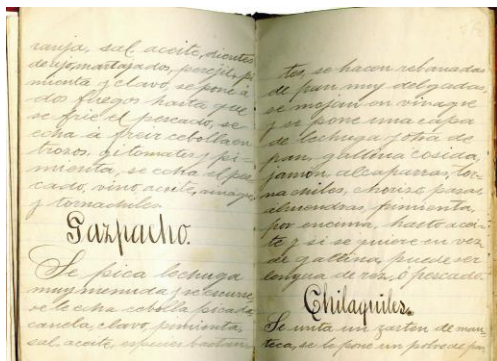 ranja, sal aceite, dientes
de ajo, martajados, perejil, pi
mienta y clavo, se pone á
dos fuegos hasta que
se frie el pescado, se
echa á freir cebolla en
trozos, gitomates y pi-
mienta, se echa el pes
cado, vino aceite, vinagre
y tornachiles
Gazpacho.
Se pica lechuga
muy menuda y se escurre,
se le echa cebolla picada
canela, clavo, pimienta,
sal aceite, especies bastan
tes, se hacen rebanadas
de pan muy delgadas,
se mojan en vinagre
y se pone una capa
de lechuga y otra de
pan, gallina cosida,
jamon alcaparras, tor-
nachiles, chorizo pasas,
almendras, pimienta,
por encima, harto acei-
te y si se quiere en vez
de gallina, puede ser
lengua de rez, ó pescado.
Chilaquiles.
Se unta un zarten de man
teca, se le pone un polvo de pan